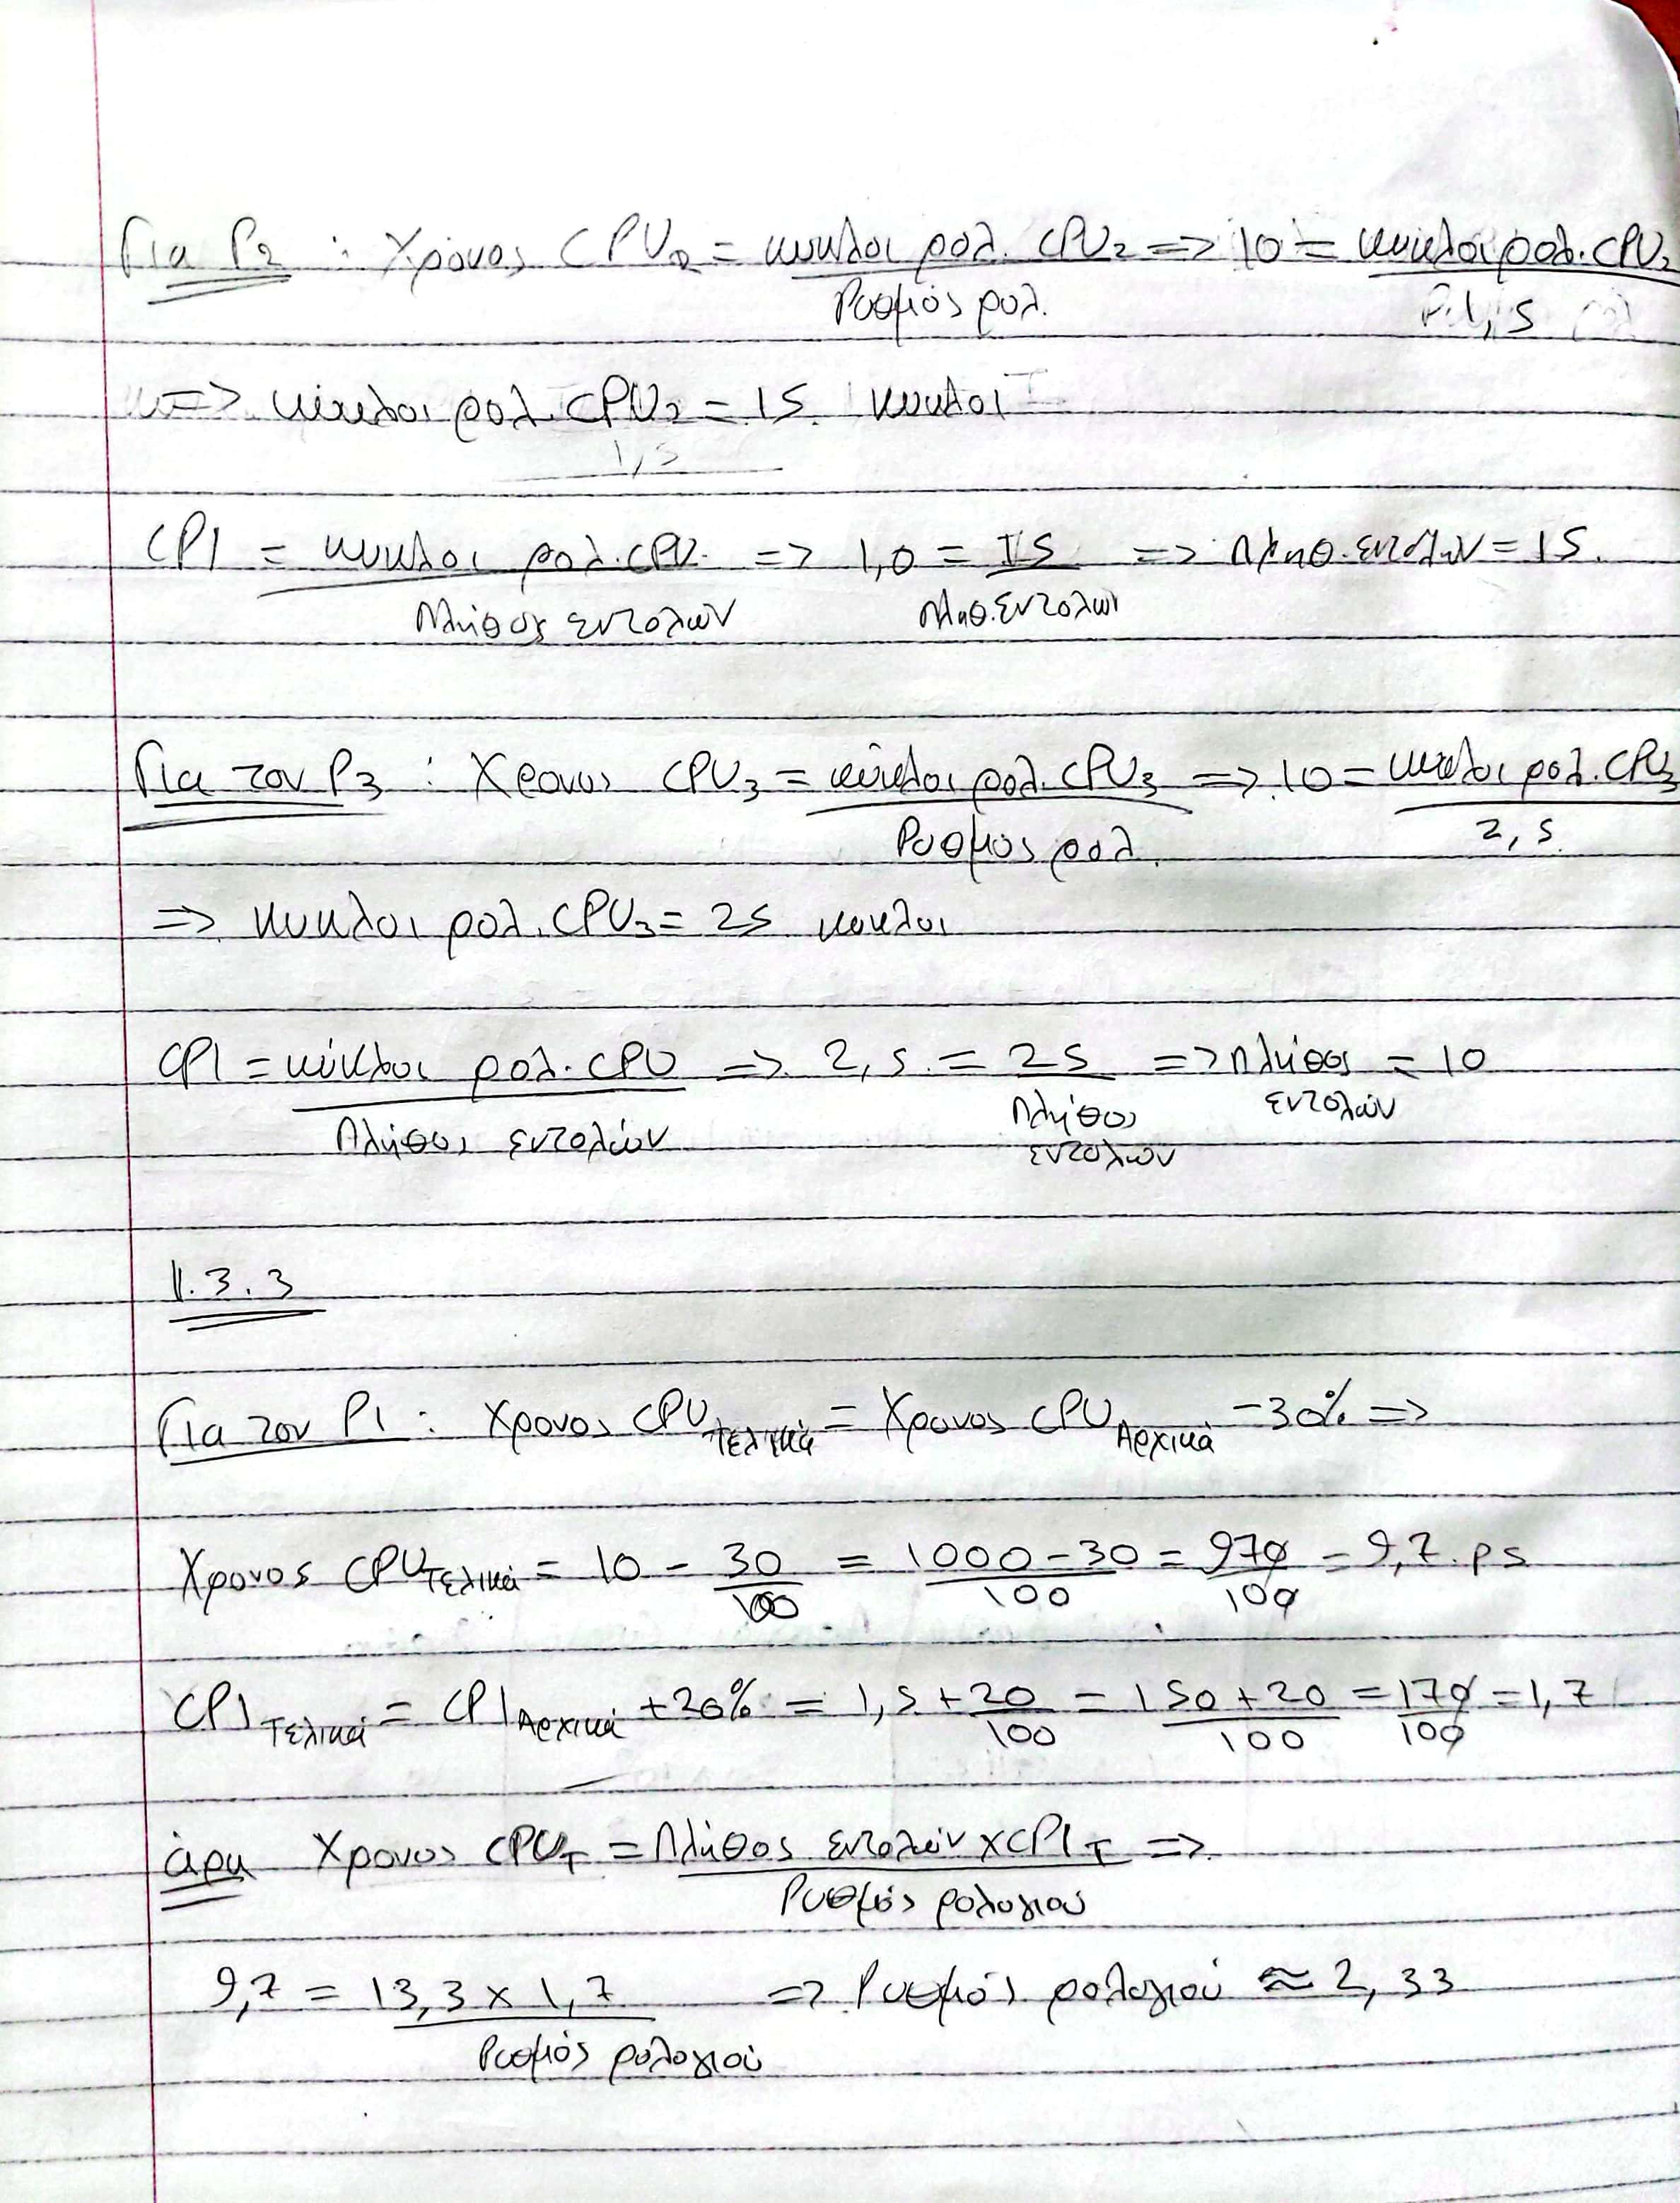 Για P2 : Χρόνος CPU2 = κυκλοι ρολ. CPU2 => 10 = κυκλοι ρολ. CPU2
Ρυθμός ρολ. 1,5
=> κύκλοι ρολ. CPU2 = 15 κυκλοι
1,5
CPI = κυκλοι ρολ. CPU => 1,0 = 15 => πληθ. εντολών = 15
Πλήθος εντολών Πληθ. εντολών
Για τον P3 : Χρονος CPU3 = κύκλοι ρολ. CPU3 => 10 = κυκλοι ρολ. CPU3
Ρυθμος ρολ. 2,5
=> κυκλοι ρολ. CPU3 = 25 κυκλοι
CPI = κύκλοι ρολ. CPU => 2,5 = 25 => πλήθος = 10
Πλήθος εντολών Πλήθος εντολών εντολών
1.3.3
Για τον P1 : Χρονος CPU Τελικά = Χρονος CPU Αρχικά - 30% =>
Χρονος CPU Τελικά = 10 - 30/100 = 1000-30/100 = 970/100 = 9,7 ps
CPI Τελικά = CPI Αρχικά + 20% = 1,5 + 20/100 = 150+20/100 = 170/100 = 1,7
άρα Χρονος CPUT = Πλήθος εντολών x CPIT =>
Ρυθμός ρολογιού
9,7 = 13,3 x 1,7 => Ρυθμός ρολογιού ≈ 2,33
Ρυθμός ρολογιού